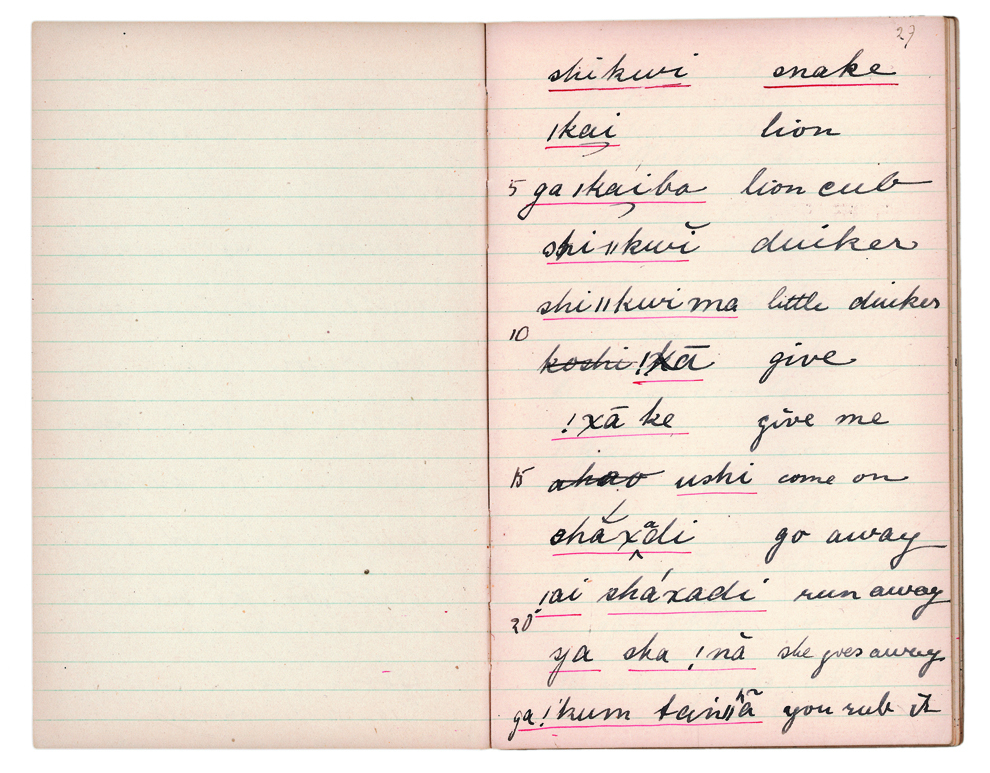 27
shikwi snake
ǀkai lion
5 ga ǀkaiba lion cub
shiǁkwĭ duiker
shiǁkwima little duiker
10
koshi !xā give
!xā ke give me
15 ushi come on
shắxadi go away
ǀai sháxadi run away
20
ya sha !nā she goes away
you rub it